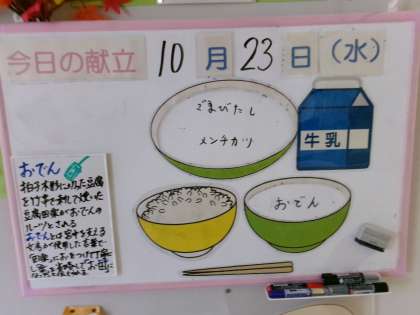 今日の献立 10月23日(水)
ごまびたし
メンチカツ
牛乳
おでん
おでん
拍子木形に切った豆腐
を竹串で刺して焼いた
豆腐田楽がおでんの
ルーツとされる
おでんとは宮中を支える
女房が使用した言葉で